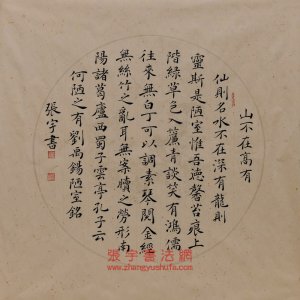 山不在高有
仙則名水不在深有龍則
靈斯是陋室惟吾德馨苔痕上
階綠草色入簾青談笑有鴻儒
往來無白丁可以調素琴閱金經
無絲竹之亂耳無案牘之勞形南
陽諸葛廬西蜀子雲亭孔子云
何陋之有劉禹錫陋室銘
張宇書
张宇书法网
www.zhangyushufa.com